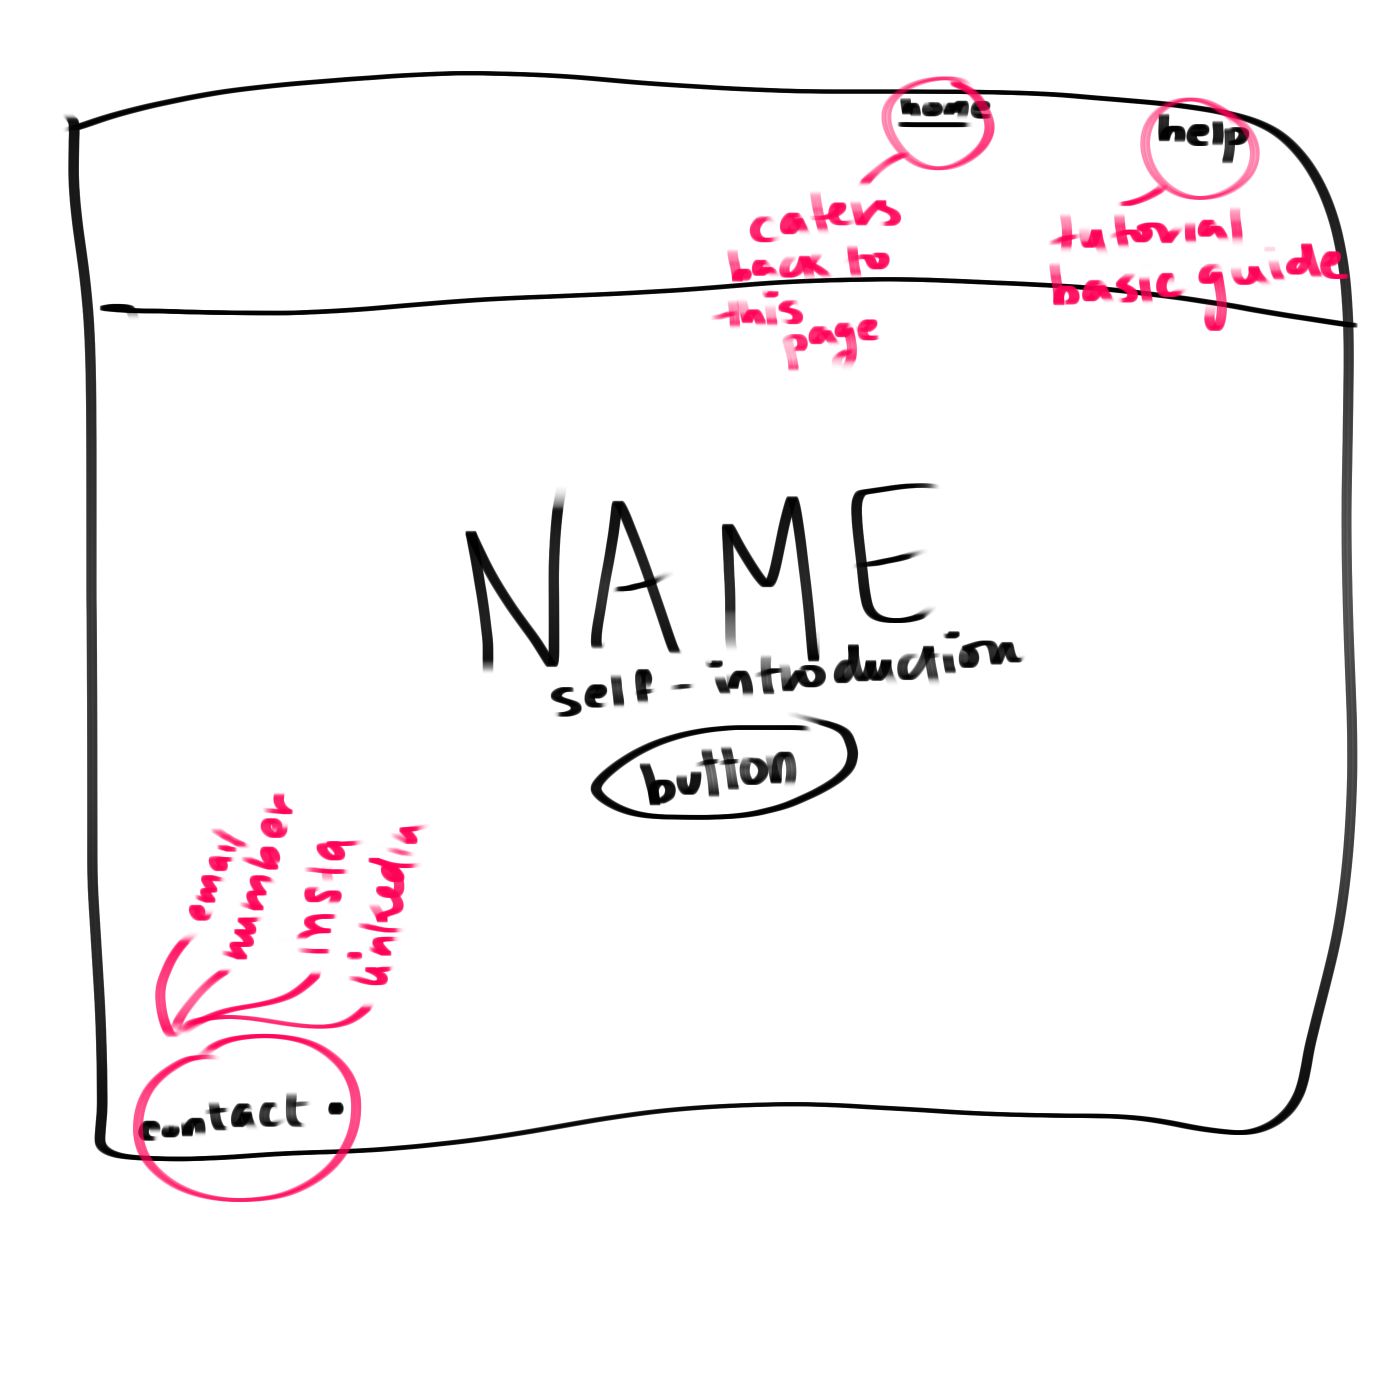 home
help
caters
back to
this
page
tutorial
basic guide
NAME
self-introduction
button
email
number
insta
linkedin
contact.